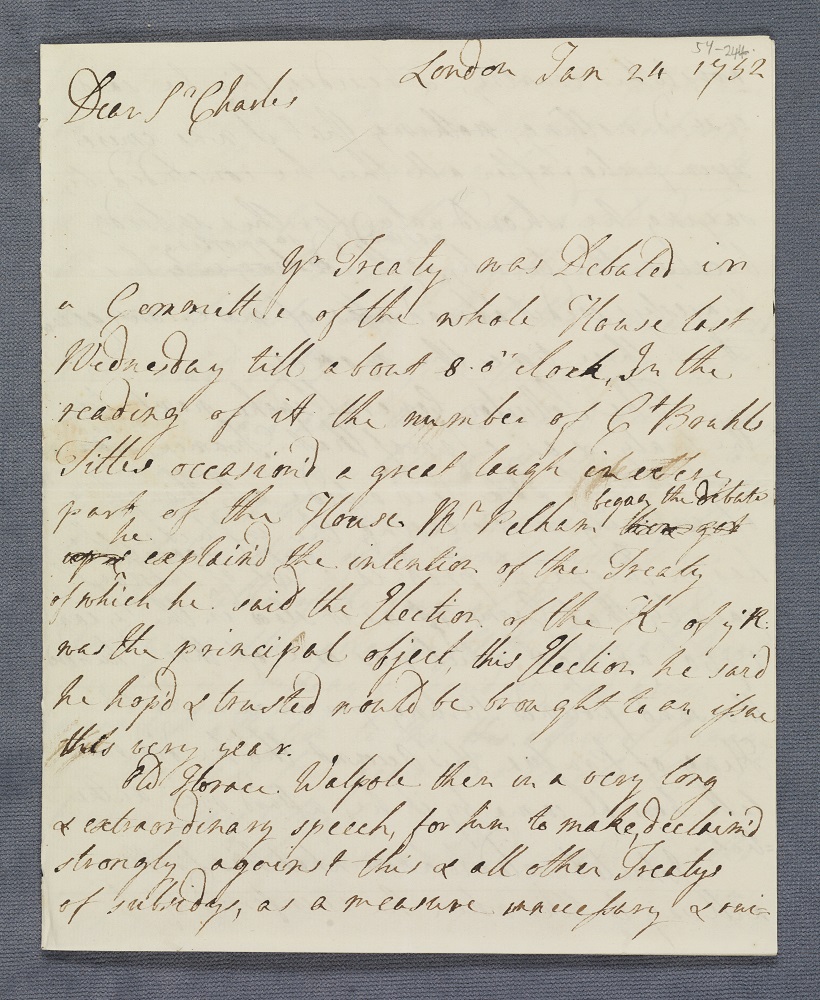 54-244.
London Jan 24 1752
Dear Sr Charles
Yr Treaty was Debated in
a Committee of the whole House last
Wednesday till about 8 o'clock, In the
reading of it the number of Ct Bruhls
Titles occasion'd a great laugh in every
part of the House. Mr Pelham began the debate
he explain'd the intention of the Treaty
of which he said the Election of the K. of ye R.
was the principal object, this Election he said
he hop'd & trusted would be brought to an issue
this very year.
Old Horace Walpole then in a very long
& extraordinary speech, for him to make, declaim'd
strongly against this & all other Treatys
of subsidys, as a measure unnecessary & rui-